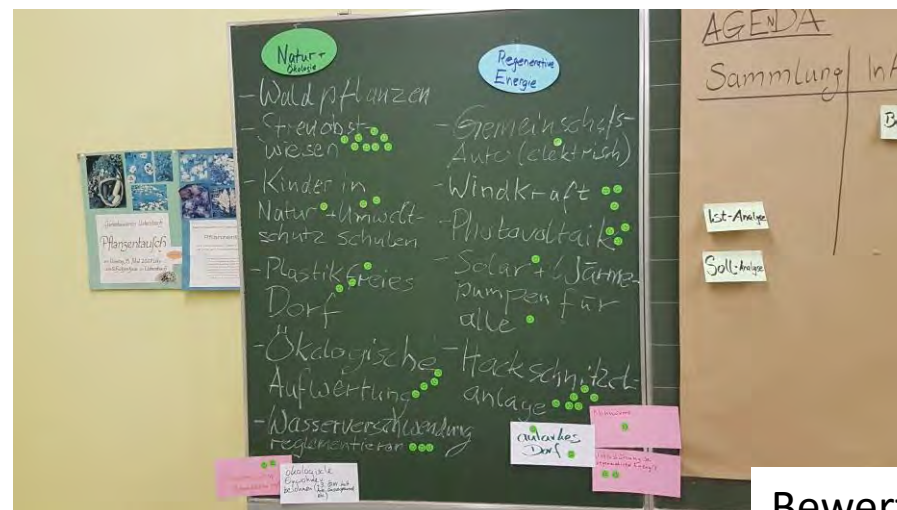 Natur +
Ökologie
- Waldpflanzen
- Streuobst-
wiesen
- Kinder in
Natur + Umwelt-
schutz schulen
- Plastikfreies
Dorf
- Ökologische
Aufwertung
- Wasserverschwendung
reglementieren
ökologische
Regenerative
Energie
- Gemeinschafs-
Auto (elektrisch)
- Windkraft
- Photovoltaik
- Solar + Wärme-
pumpen für
alle
- Hackschnitzel-
anlage
autarkes
Dorf
AGENDA
Sammlung
Ist-Analyse
Soll-Analyse
Pflanzentausch
Bewer